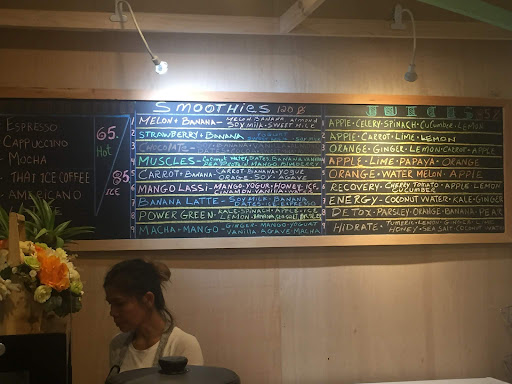 ESPRESSO
CAPPUCCINO
- MOCHA
- THAI ICE COFFEE
- AMERICANO
65.
Hot
85
ICE
SMOOTHIES 120 ฿
MELON + BANANA - MELON BANANA almond
SOY MILK - SWEET MICE
STRAWBERRY + BANANA
CHOCOLATE - BANANA
MUSCLES - Coconut Water, DATES, BANANA
MANGO
CARROT + BANANA - CARROT - BANANA - YOGUR
ORANGE - SOY - AGAVE
MANGO LASSI - MANGO - YOGUR - HONEY - ICE.
CINAMON - VANILLA
BANANA LATTE - SOY MILK - BANANA
DATES - ICE EXPRESSO
POWER GREEN - KALE - SPINACH - APPLE ICE
LEMON - BANANA
MACHA - MANGO - GINGER - MANGO - YOGURT
VANILLA AGAVE MACHA
JUICES 95
APPLE · CELERY - SPINACH - CUCUMBER - LEMON
APPLE · CARROT · LIME · LEMON
ORANGE · GINGER · LEMON · CARROT · APPLE
APPLE · LIME · PAPAYA · ORANGE
ORANGE · WATER MELON · APPLE
RECOVERY · CHERRY TOMATO · APPLE LEMON
CUCUMBER
ENERGY - COCONUT WATER - KALE - GINGER
DETOX - PARSLEY - ORANGE - BANANA - PEAR
HIDRATE - TUMERIC - LEMON - GINGER - LIME
HONEY - SEA SALT - COCONUT WATER